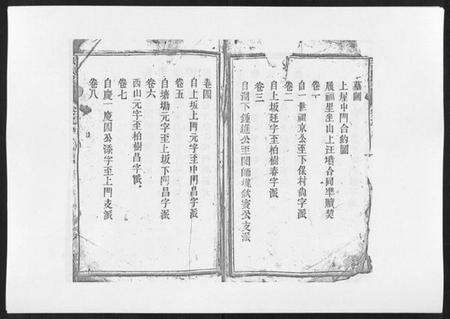 墓圖
上屋中門合約圖
鳳福里坐山上汪墳合同筆贖契
卷一
自一世祖京公至下保村尚字派
卷二
自上坂廷字至柏樹春字派
卷三
自湖下鍾進公至閔師瑰欽寶公支派
卷四
自上坂上門元字至中門昌字派
卷五
自塘塝元字至上坂下門昌字派
卷六
西山元字至柏樹昌字派
卷七
自慶一庵因公添字至上門支派
卷八